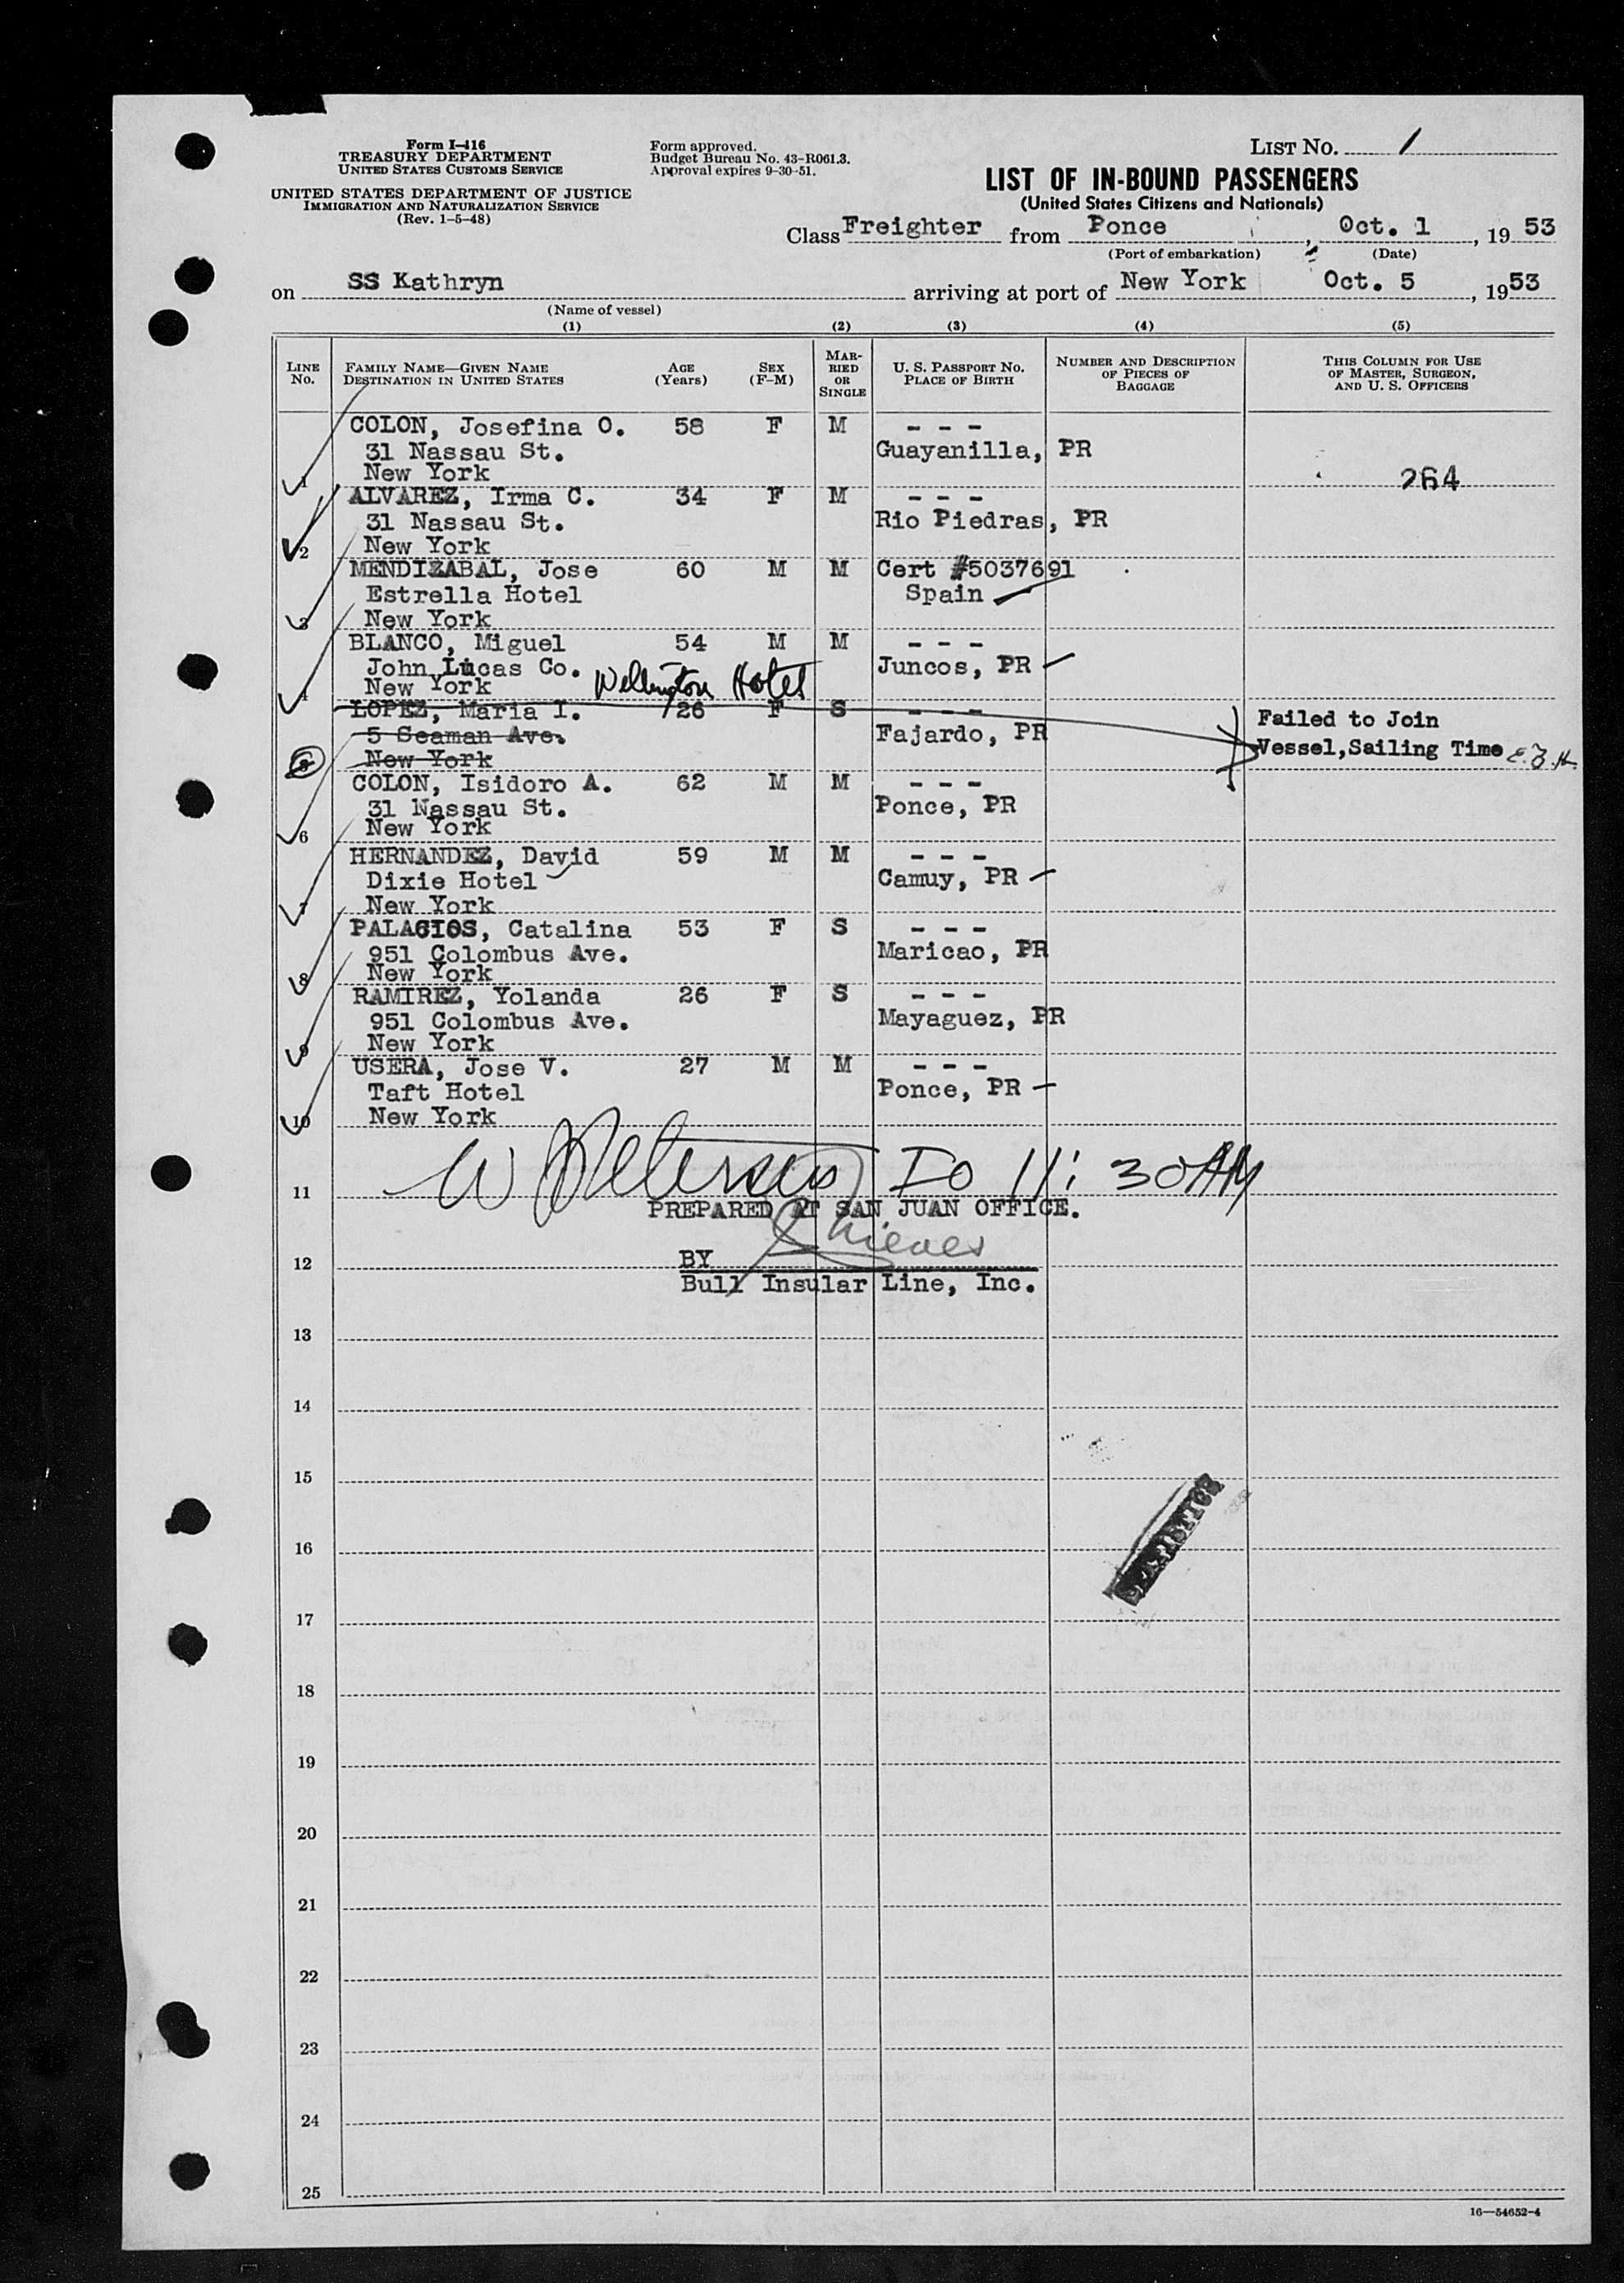 Form I-416
TREASURY DEPARTMENT
UNITED STATES CUSTOMS SERVICE
UNITED STATES DEPARTMENT OF JUSTICE
IMMIGRATION AND NATURALIZATION SERVICE
(Rev. 1-5-48)
Form approved.
Budget Bureau No. 43-R061.3.
Approval expires 9-30-51.
LIST NO. 1
LIST OF IN-BOUND PASSENGERS
(United States Citizens and Nationals)
Class Freighter from Ponce, Oct. 1, 1953
(Port of embarkation) (Date)
on SS Kathryn arriving at port of New York Oct. 5, 1953
(Name of vessel)
(1) (2) (3) (4) (5)
LINE NO. FAMILY NAME—GIVEN NAME DESTINATION IN UNITED STATES AGE (Years) SEX (F-M) MARRIED OR SINGLE U. S. PASSPORT NO. PLACE OF BIRTH NUMBER AND DESCRIPTION OF PIECES OF BAGGAGE THIS COLUMN FOR USE OF MASTER, SURGEON, AND U. S. OFFICERS
COLON, Josefina O. 58 F M - - -
31 Nassau St. Guayanilla, PR
1 New York 264
ALVAREZ, Irma C. 34 F M - - -
31 Nassau St. Rio Piedras, PR
2 New York
MENDIZABAL, Jose 60 M M Cert #5037691
Estrella Hotel Spain
3 New York
BLANCO, Miguel 54 M M - - -
John Lucas Co. Juncos, PR
4 New York Wellington Hotel
LOPEZ, Maria I. 26 F S - - - Failed to Join
5 Seaman Ave. Fajardo, PR Vessel,Sailing Time
5 New York
COLON, Isidoro A. 62 M M - - -
31 Nassau St. Ponce, PR
6 New York
HERNANDEZ, David 59 M M - - -
Dixie Hotel Camuy, PR
7 New York
PALACIOS, Catalina 53 F S - - -
951 Colombus Ave. Maricao, PR
8 New York
RAMIREZ, Yolanda 26 F S - - -
951 Colombus Ave. Mayaguez, PR
9 New York
USERA, Jose V. 27 M M - - -
Taft Hotel Ponce, PR
10 New York
W Petersen IO 11:30AM
11
PREPARED AT SAN JUAN OFFICE.
12 BY Nieves
Bull Insular Line, Inc.
13
14
15
STATISTICS
16
17
18
19
20
21
22
23
24
25
16—54652-4